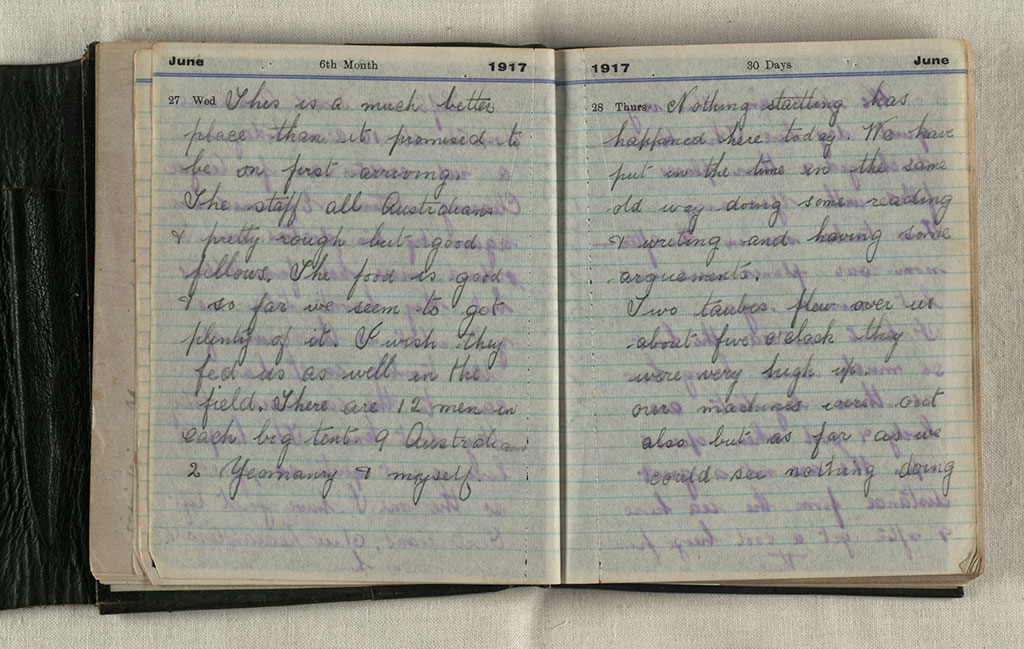 June 6th Month 1917
27 Wed This is a much better
place than it promised to
be on first arriving.
The staff all Australians
& pretty rough but good
fellows. The food is good
& so far we seem to get
plenty of it. I wish they
fed us as well in the
field. There are 12 men in
each big tent. 9 Australians
2 Yeomanry & myself
1917 30 Days June
28 Thurs Nothing startling has
happened here today. We have
put in the time in the same
old way doing some reading
& writing and having some
arguements.
Two taubes flew over us
about five o'clock they
were very high up.
our machines were out
also but as far as we
could see nothing doing